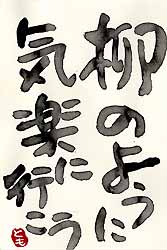 柳のように
気楽に
行こう
とも